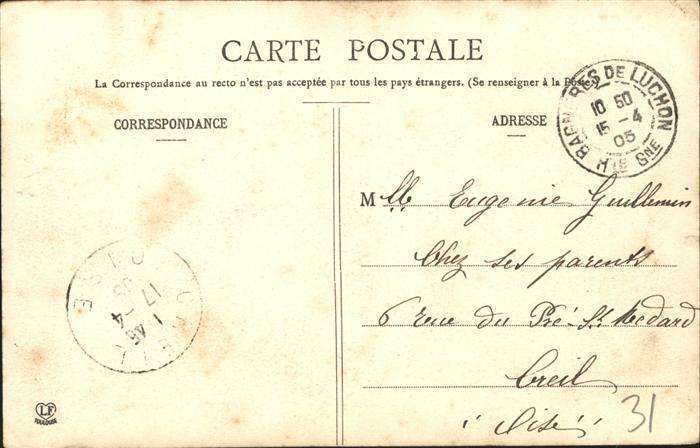 CARTE POSTALE
La Correspondance au recto n'est pas acceptée par tous les pays étrangers. (Se renseigner à la Poste.)
CORRESPONDANCE
ADRESSE
BAGNÈRES DE LUCHON
10 50
15 - 4
05
Hte Gne
Mlle Eugenie Guillemin
Chez ses parents
6 rue du Pré-St Medard
Creil
(Oise)
CREIL
OISE
1 45
17 - 4
05
LF
TOULOUSE
31